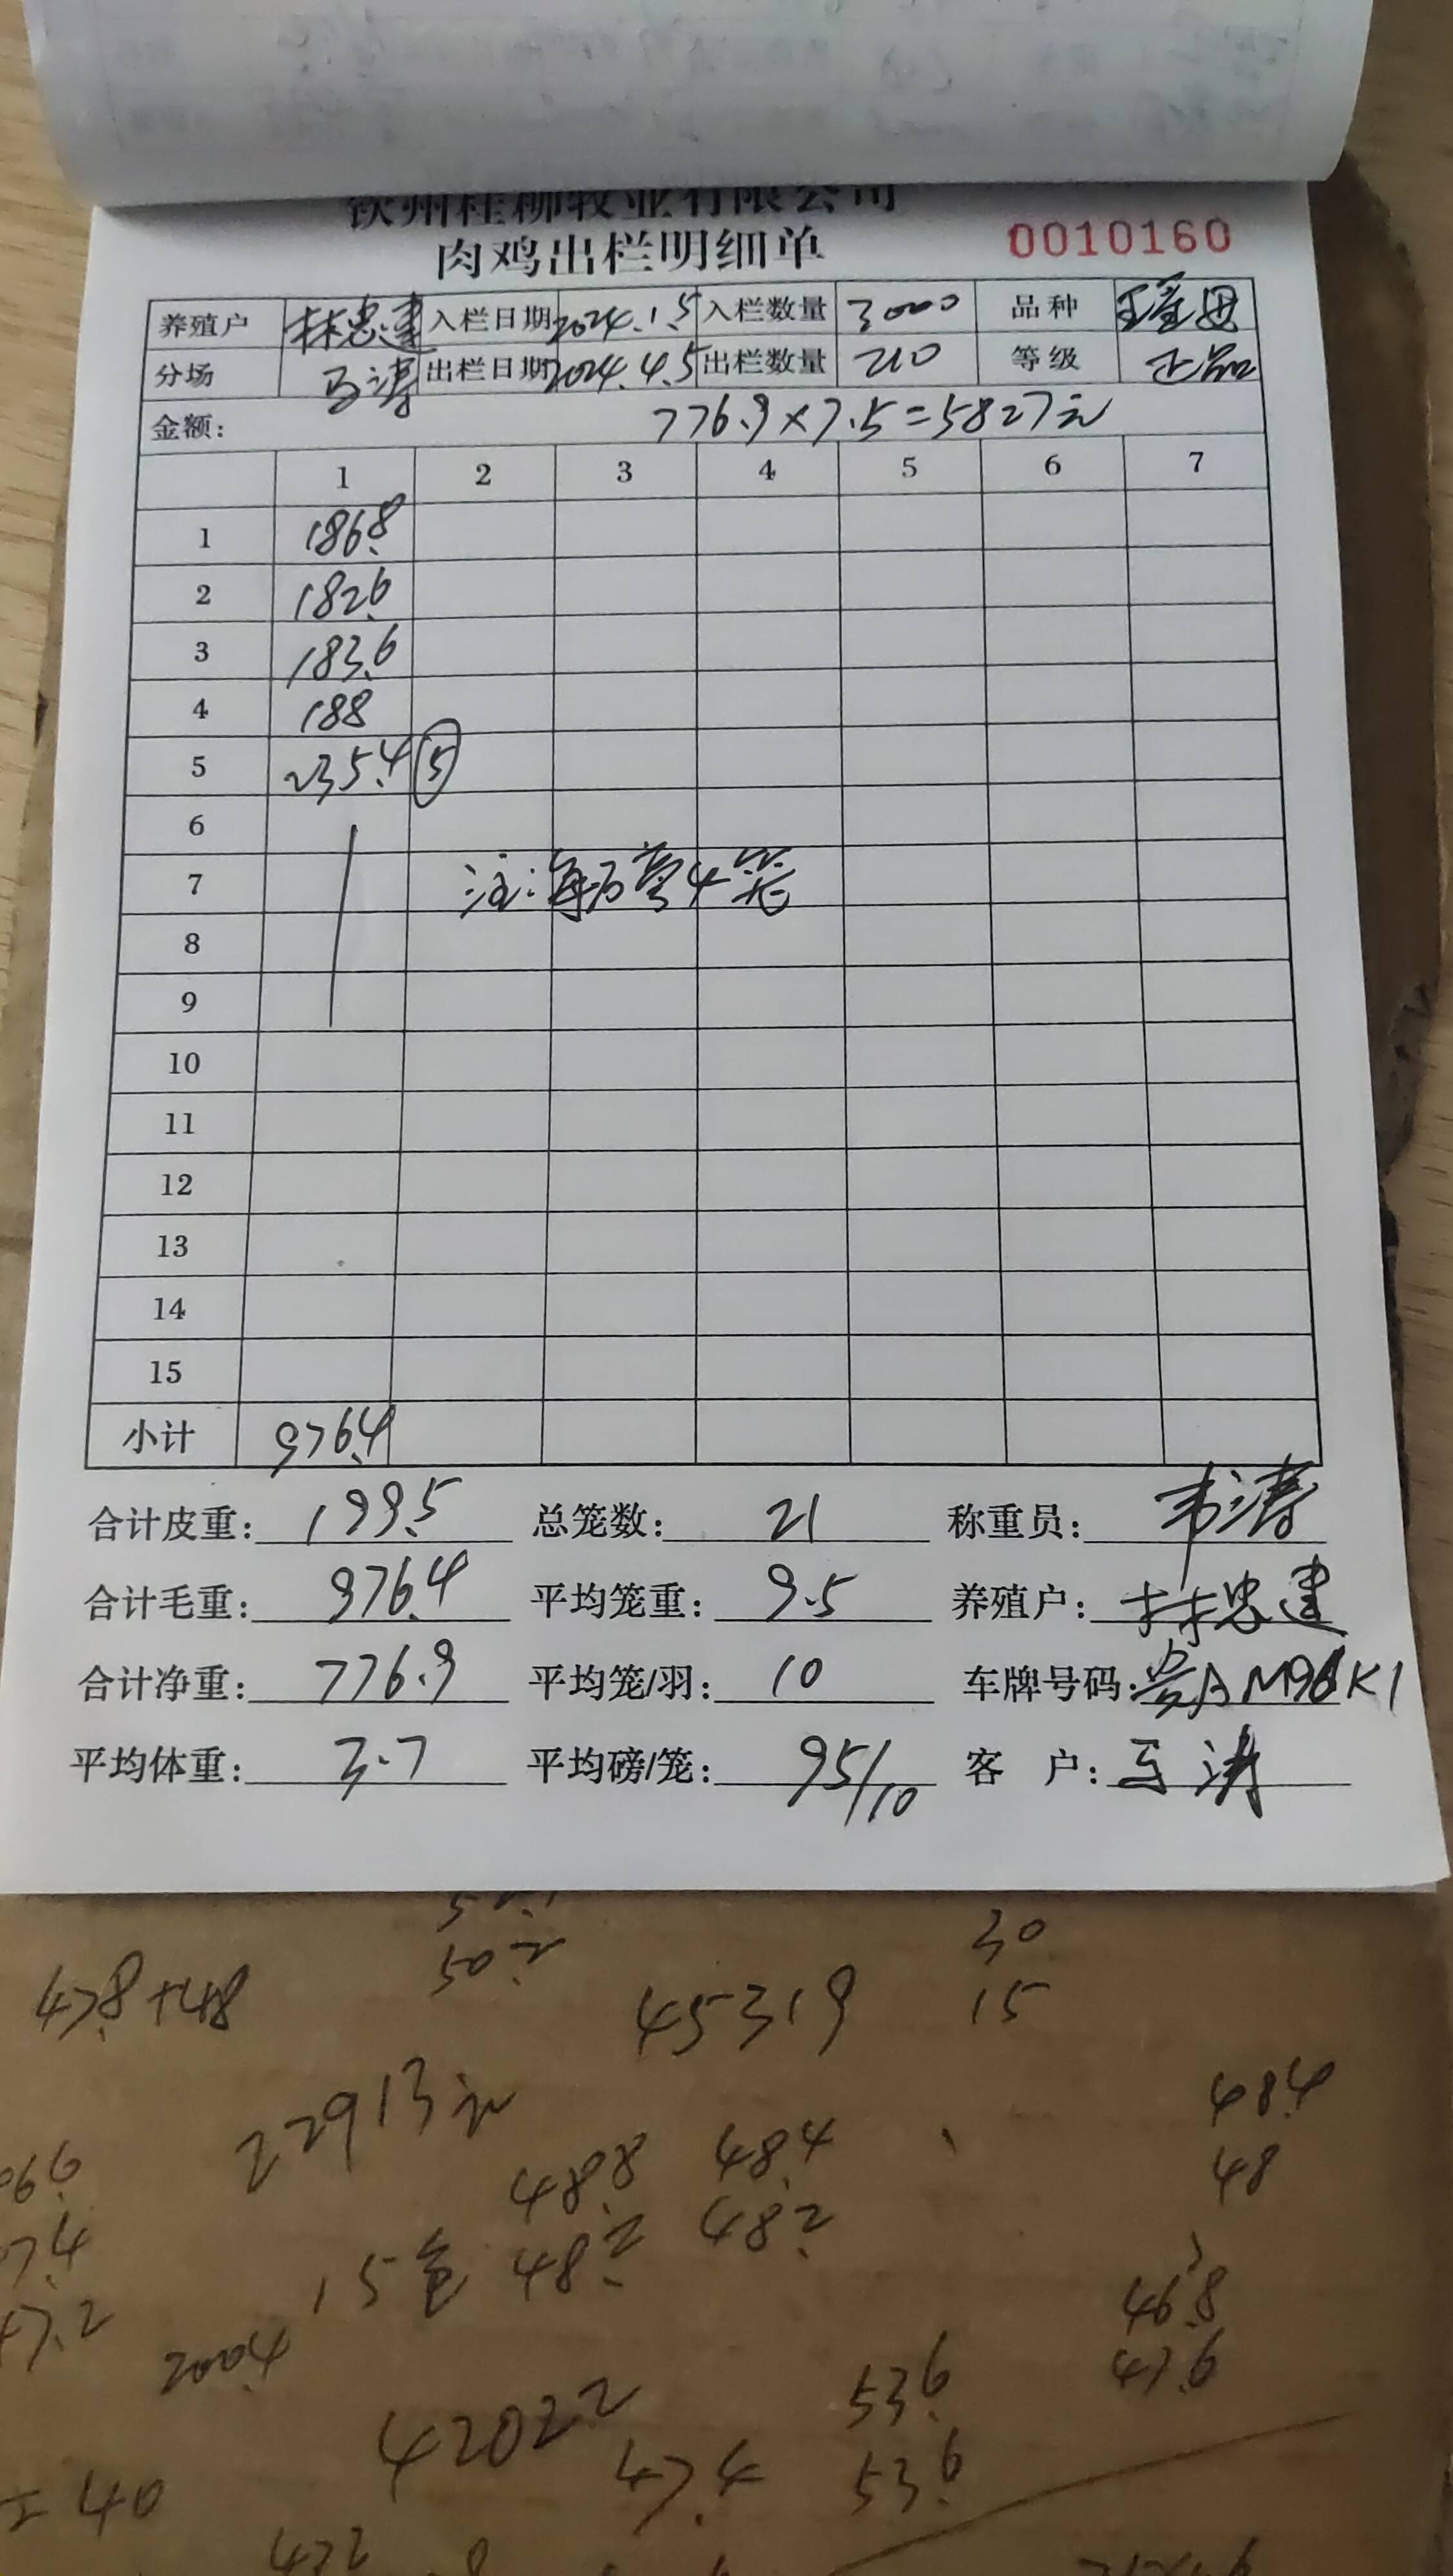 钦州桂柳牧业有限公司
肉鸡出栏明细单 0010160
养殖户 林忠建 入栏日期 2024.1.5 入栏数量 3000 品种
分场 马涛 出栏日期 2024.4.5 出栏数量 210 等级 正品
金额: 776.9×7.5=5827元
1 2 3 4 5 6 7
1 186.8
2 182.6
3 183.6
4 188
5 235.4 ⑤
6
7 注:每磅4笼
8
9
10
11
12
13
14
15
小计 976.4
合计皮重: 199.5 总笼数: 21 称重员: 韦涛
合计毛重: 976.4 平均笼重: 9.5 养殖户: 林忠建
合计净重: 776.9 平均笼/羽: 10 车牌号码: 贵AM96K1
平均体重: 3.7 平均磅/笼: 95/10 客 户: 马涛
50.2 30
47.8+48 45319 15
22913元 48.4
48.8 48.4 48
15笼 48.2 48.2
47.2 46.8
2004 53.6 47.6
42022 47.4 53.6
=40